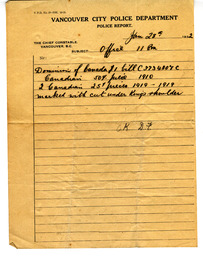 VANCOUVER CITY POLICE DEPARTMENT
POLICE REPORT.
Jan 20th 1922
THE CHIEF CONSTABLE
VANCOUVER, B.C.
SUBJECT: Office 11 Pm
Dominion of Canada $1 bill C7734807C
Canadian 50¢ piece 1910
2 Canadian 25¢ pieces 1919 - 1919
marked with cut under Kings shoulder